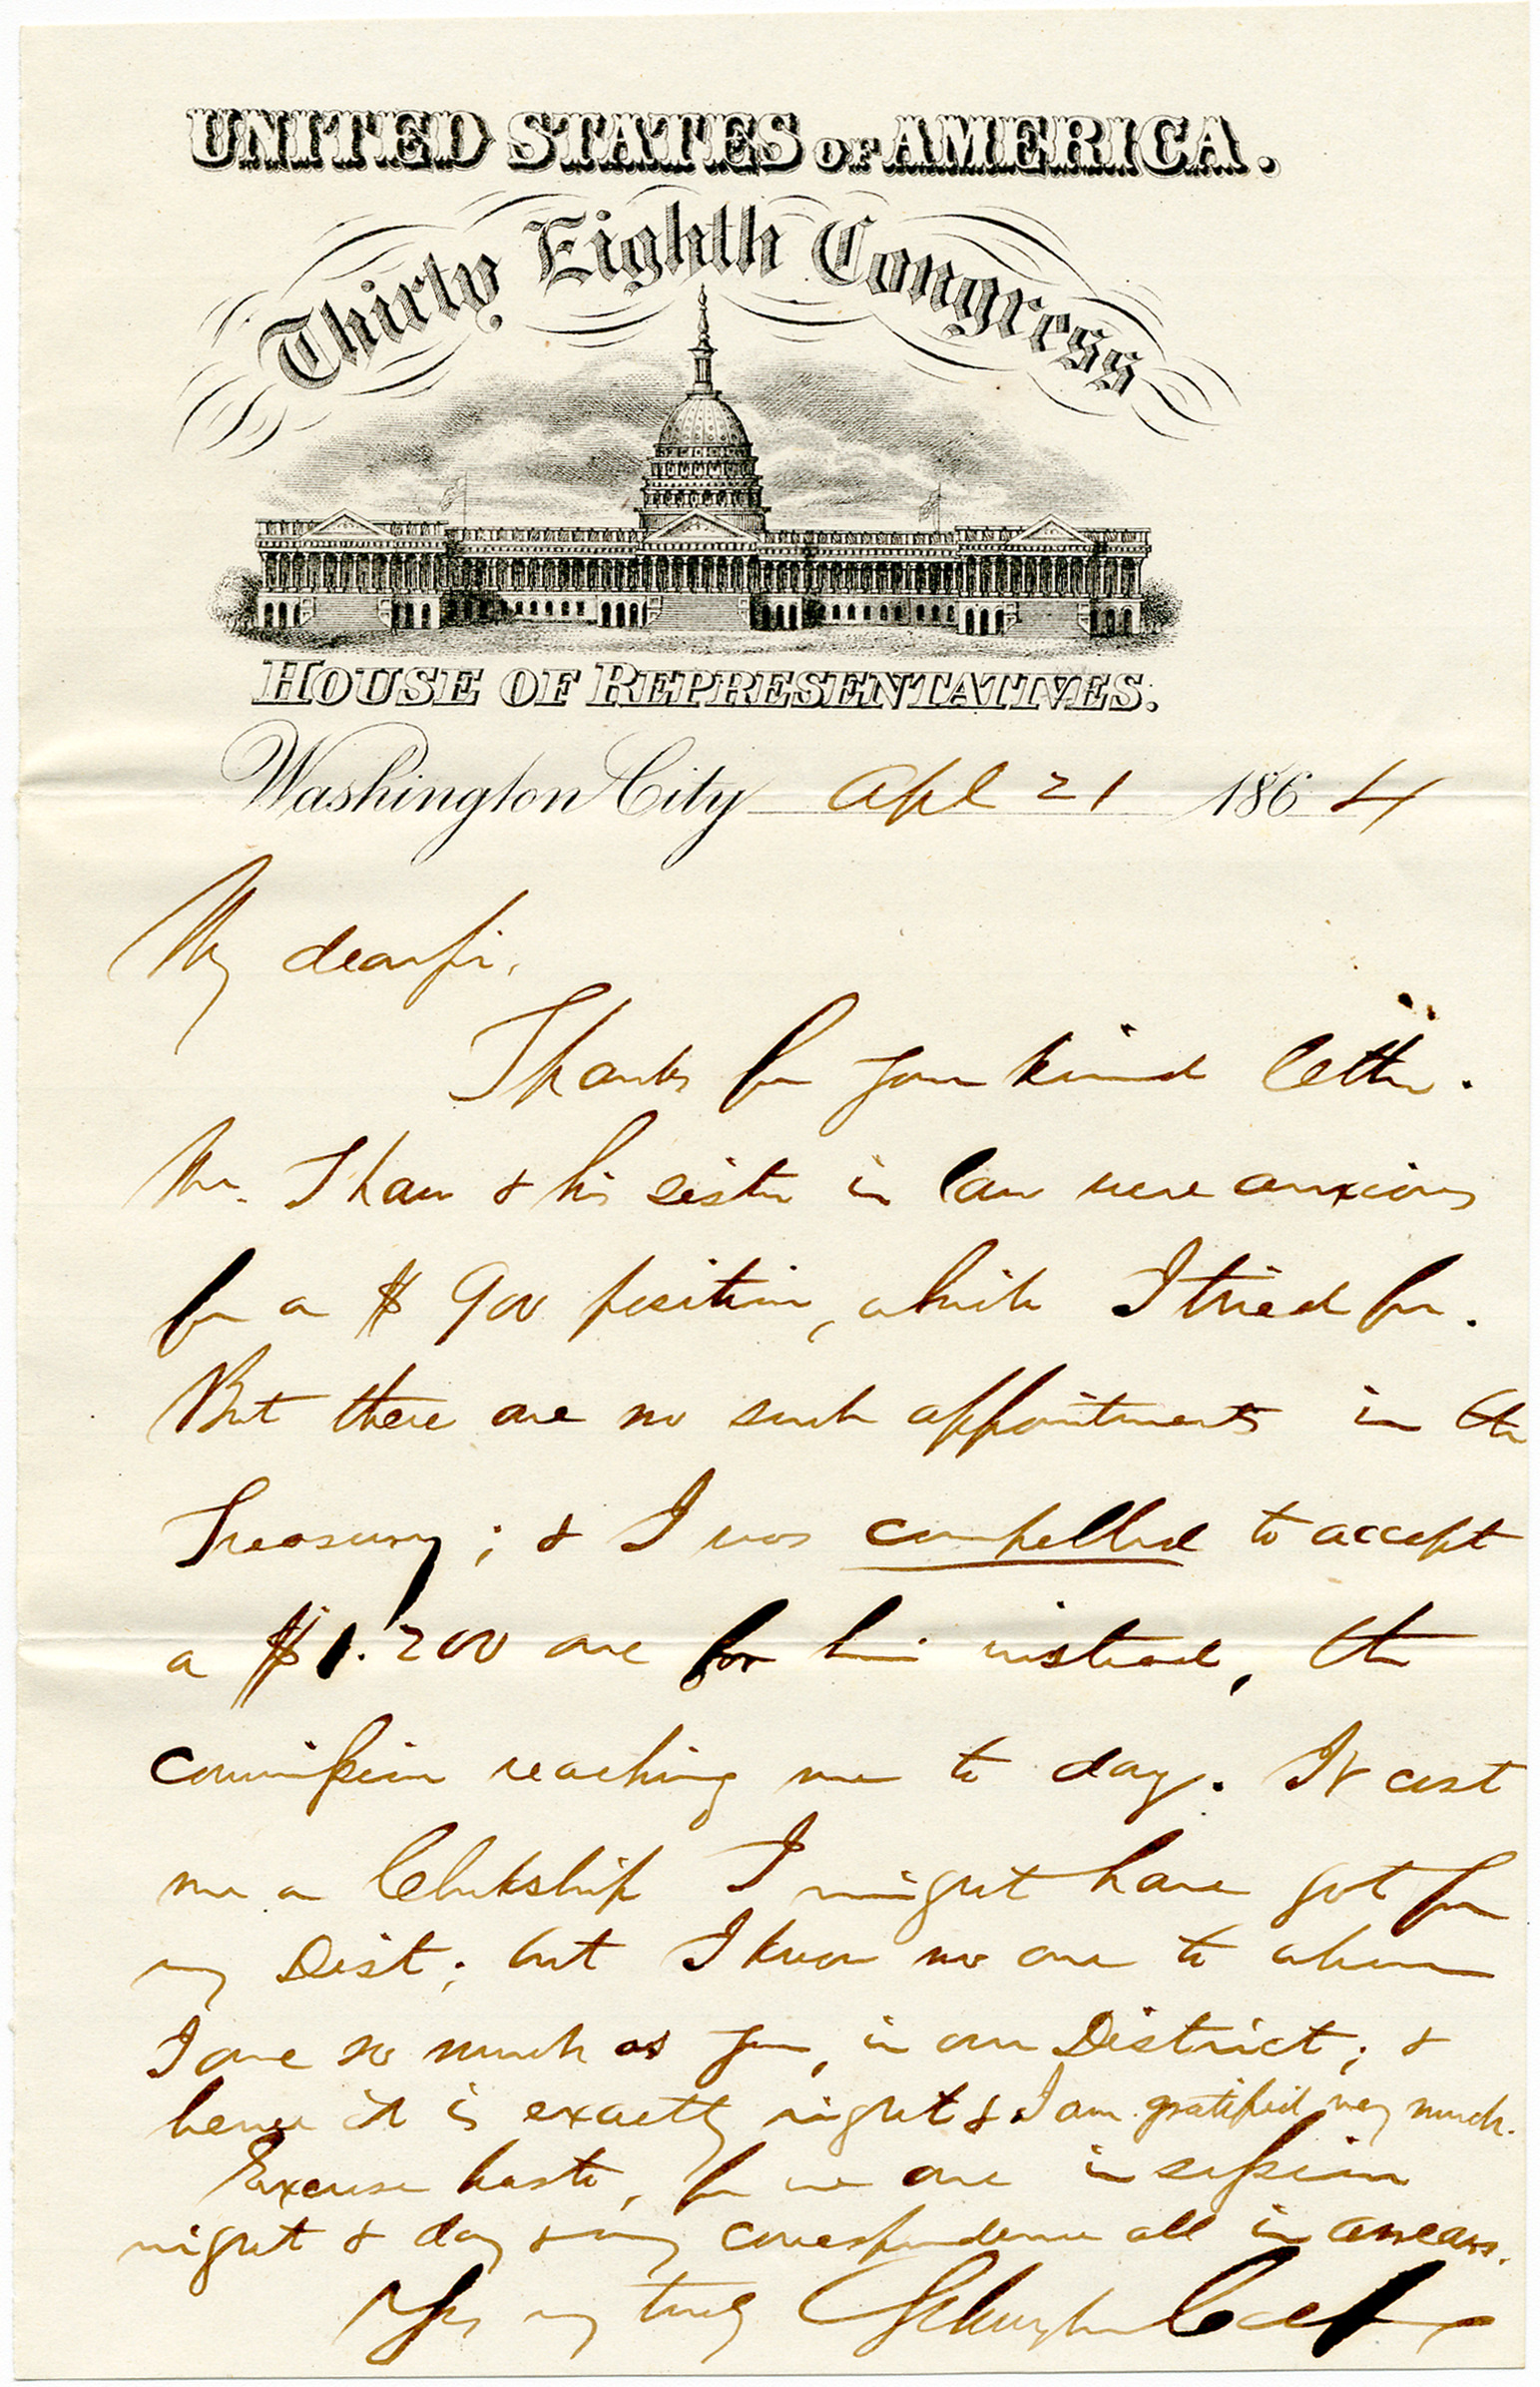 UNITED STATES OF AMERICA.
Thirty Eighth Congress
HOUSE OF REPRESENTATIVES.
Washington City Apl 21 1864
My dear Sir,
Thanks for your kind letter.
Mr. Shaw & his sister in law were anxious
for a $900 position, which I tried for.
But there are no such appointments in the
Treasury; & I was compelled to accept
a $1.200 one for him instead, the
commission reaching me to day. It cost
me a Clerkship I might have got for
my Dist; but I know no one to whom
I owe so much as you, in our District; &
hence it is exactly right & I am gratified very much.
Excuse haste, for we are in session
night & day & my correspondence all in arrears.
Yrs very truly Schuyler Colfax